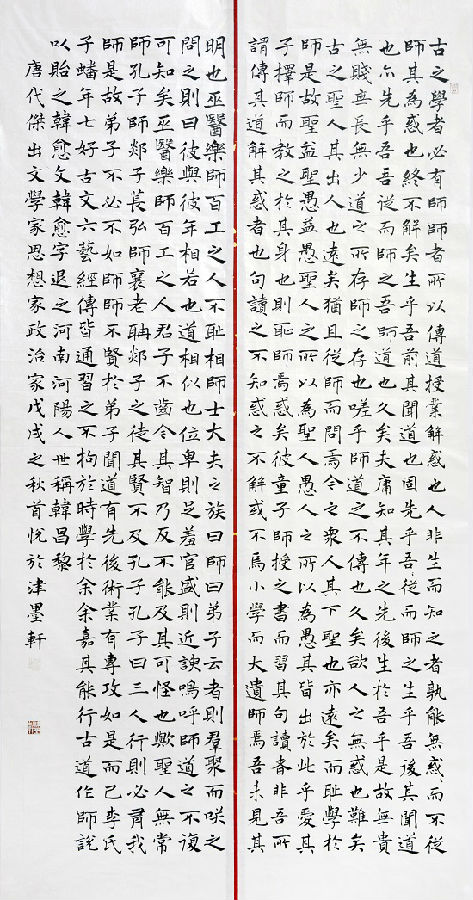 古之學者必有師師者所以傳道授業解惑也人非生而知之者孰能無惑惑而不從
師其為惑也終不解矣生乎吾前其聞道也固先乎吾吾從而師之生乎吾後其聞道
也亦先乎吾吾從而師之吾師道也久矣夫庸知其年之先後生於吾乎是故無貴
無賤無長無少道之所存師之存也嗟乎師道之不傳也久矣欲人之無惑也難矣
古之聖人其出人也遠矣猶且從師而問焉今之衆人其下聖也亦遠矣而恥學於
師是故聖益聖愚益愚聖人之所以為聖人愚人之所以為愚其皆出於此乎愛其
子擇師而教之於其身也則恥師焉惑矣彼童子師授之書而習其句讀者非吾所
謂傳其道解其惑者也句讀之不知惑之不解或不焉小學而大遺師焉吾未見其
明也巫醫樂師百工之人不恥相師士大夫之族曰師曰弟子云者則羣聚而咲之
問之則曰彼與彼年相若也道相似也位卑則足羞官盛則近諛嗚呼師道之不復
可知矣巫醫樂師百工之人君子不齒今其智乃反不能及其可怪也歟聖人無常
師孔子師郯子萇弘師襄老聃郯子之徒其賢不及孔子孔子曰三人行則必有我
師是故弟子不必不如師師不賢於弟子聞道有先後術業有專攻如是而已李氏
子蟠年七好古文六藝經傳皆通習之不拘於時學於余余嘉其能行古道作師說
以貽之韓愈文韓愈字退之河南河陽人世稱韓昌黎
唐代傑出文學家思想家政治家戊戌之秋首悅於津墨軒